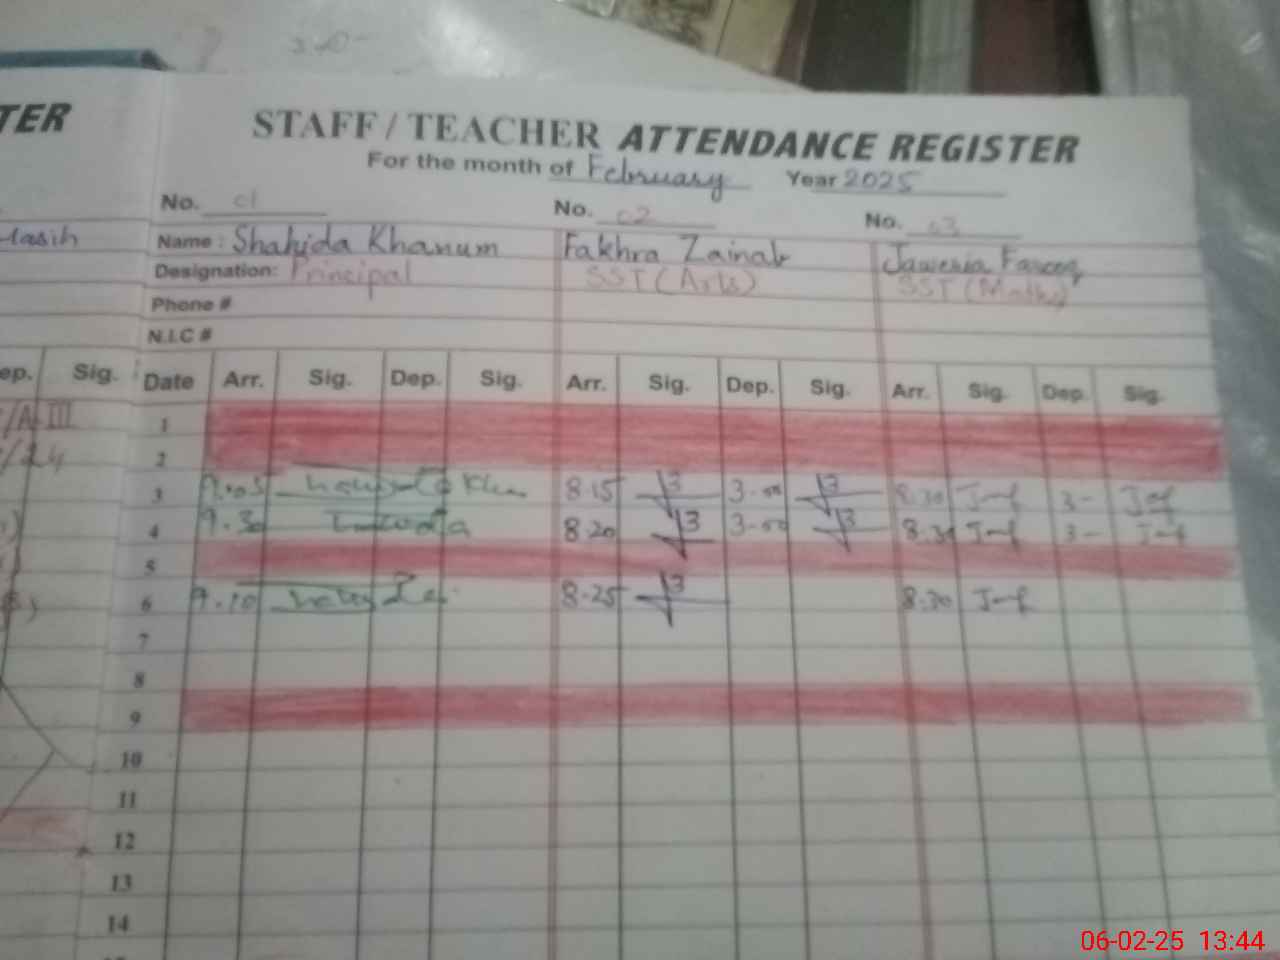 340-
TER
STAFF / TEACHER ATTENDANCE REGISTER
For the month of February Year 2025
No. 01 No. 02 No. 03
Masih Name : Shahida Khanum Fakhra Zainab Jaweria Farooq
Designation: Principal SST (Arts) SST (Maths)
Phone #
N.I.C #
ep. Sig. Date Arr. Sig. Dep. Sig. Arr. Sig. Dep. Sig. Arr. Sig. Dep. Sig.
1
2
3 9.05 8.15 3.00 8.30 3-
4 9.30 8.20 3.00 8.30 3-
5
6 9.10 8.25 8.30
7
8
9
10
11
12
13
14
06-02-25 13:44